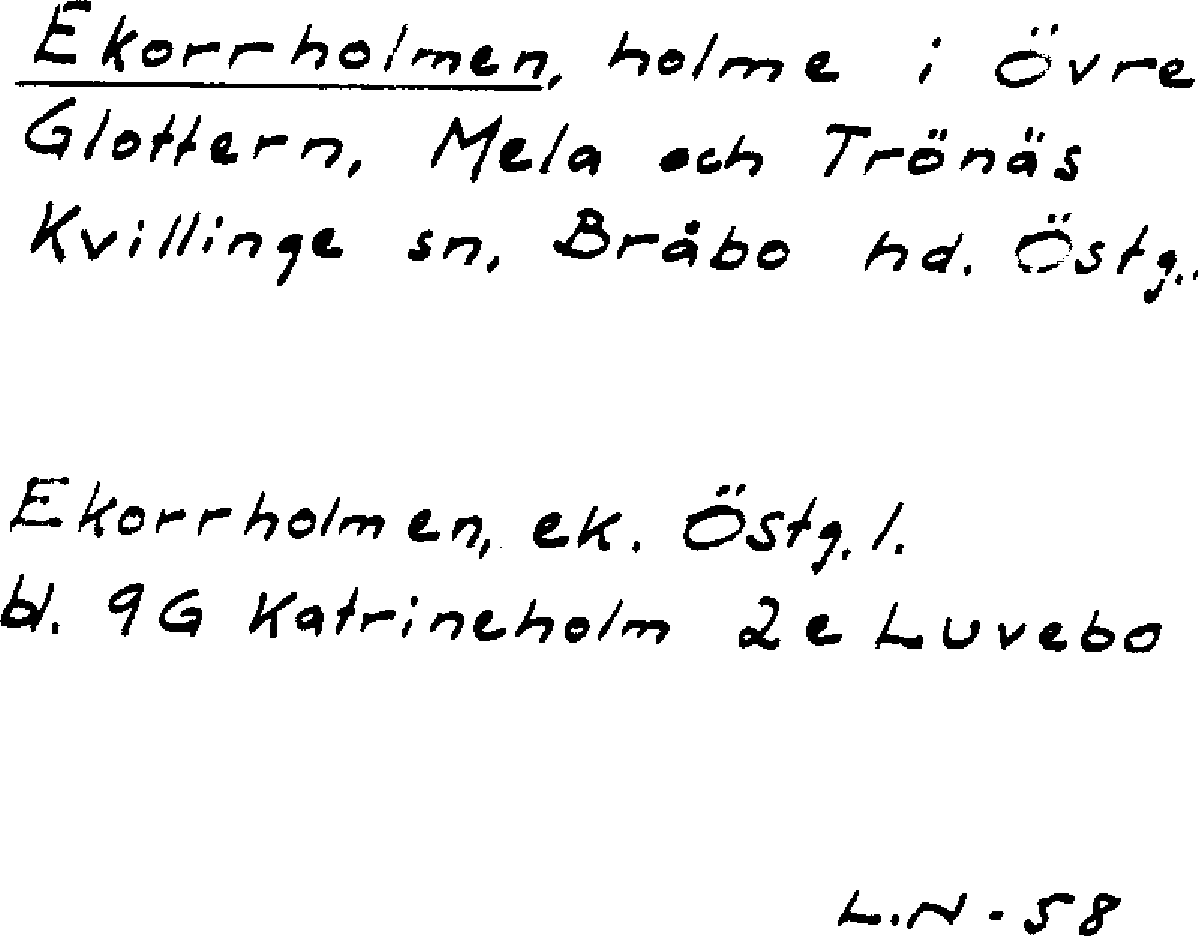 Ekorrholmen, holme i Övre
Glottern, Mela och Trönäs
Kvillinge sn, Bråbo hd. Östg..
Ekorrholmen, ek. Östg. l.
bl. 9G Katrineholm 2e Luvebo
L.N - 58